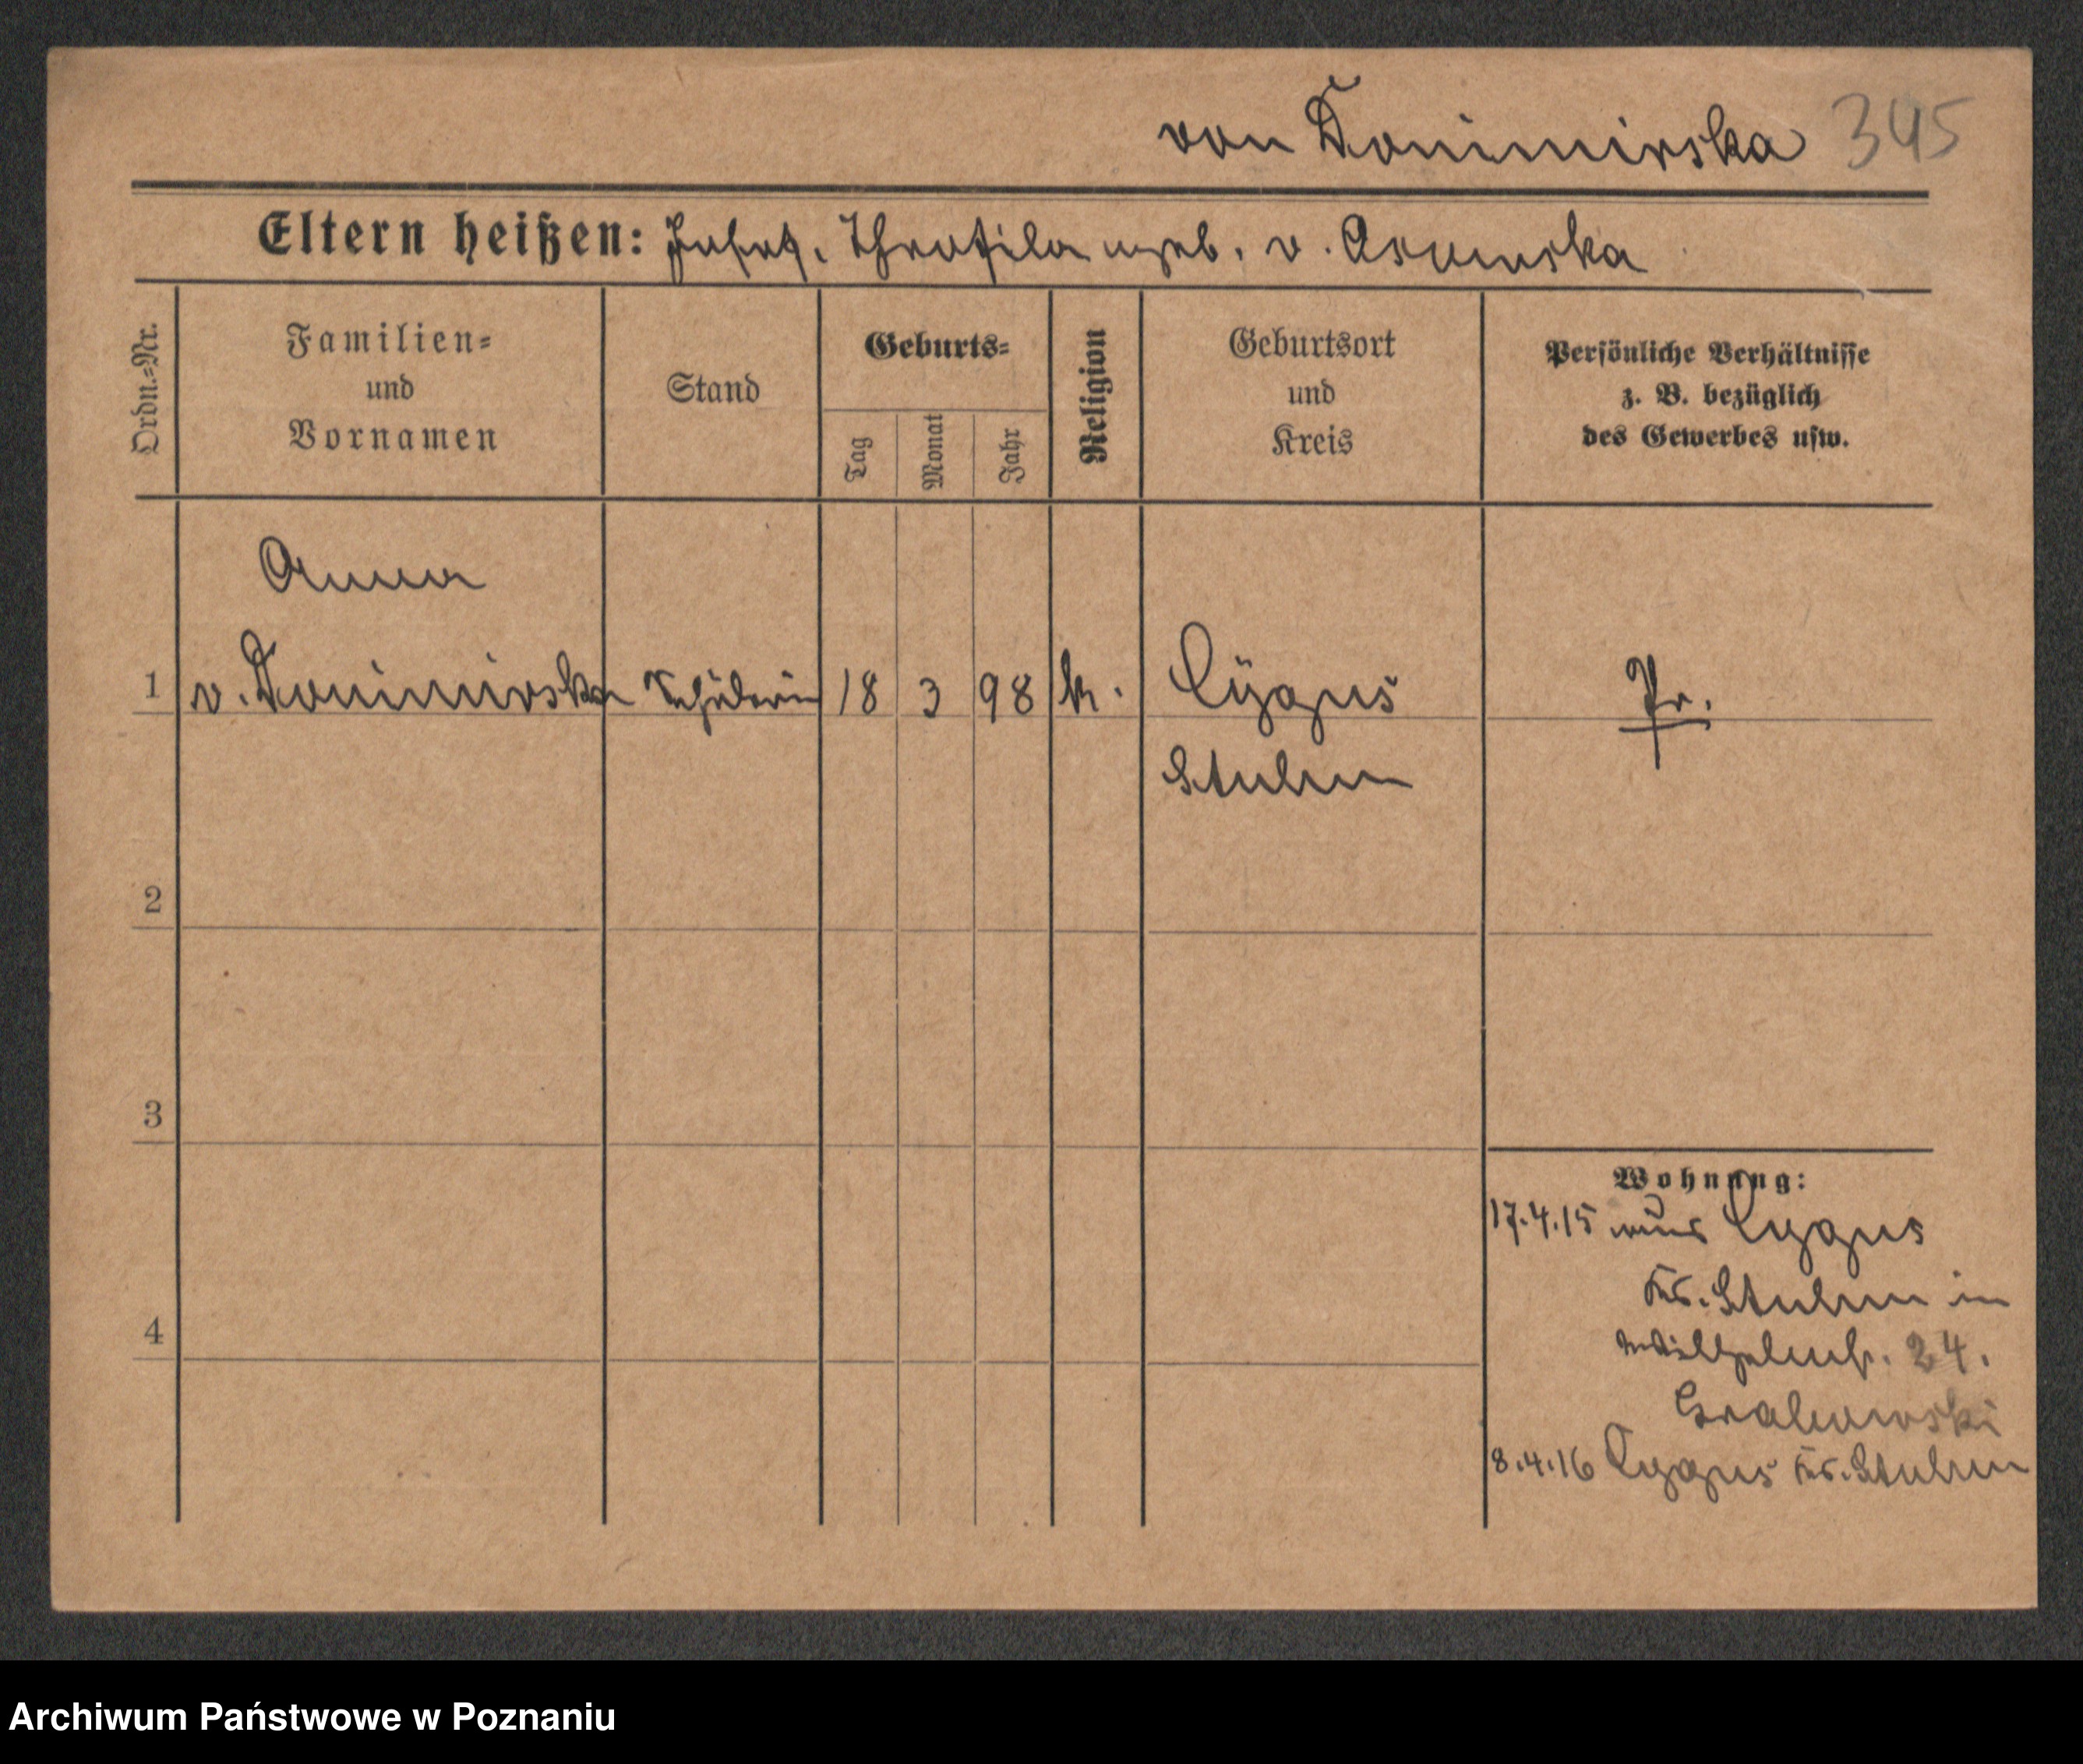 von Donimirska 345
Eltern heißen: Josef, Theofila geb. v.
Ordn.=Nr.
Familien=
und
Vornamen
Stand
Geburts=
Tag
Monat
Jahr
Religion
Geburtsort
und
Kreis
Persönliche Verhältnisse
z. B. bezüglich
des Gewerbes usw.
Anna
1 v. Donimirska Schülerin 18 3 98 k. Cygus Pr.
Stuhm
2
3
4
Wohnung:
17.4.15 aus Cygus
Kr. Stuhm in
Wilhelmstr. 24.
Grabowski
8.4.16 Cygus Kr. Stuhm
Archiwum Państwowe w Poznaniu